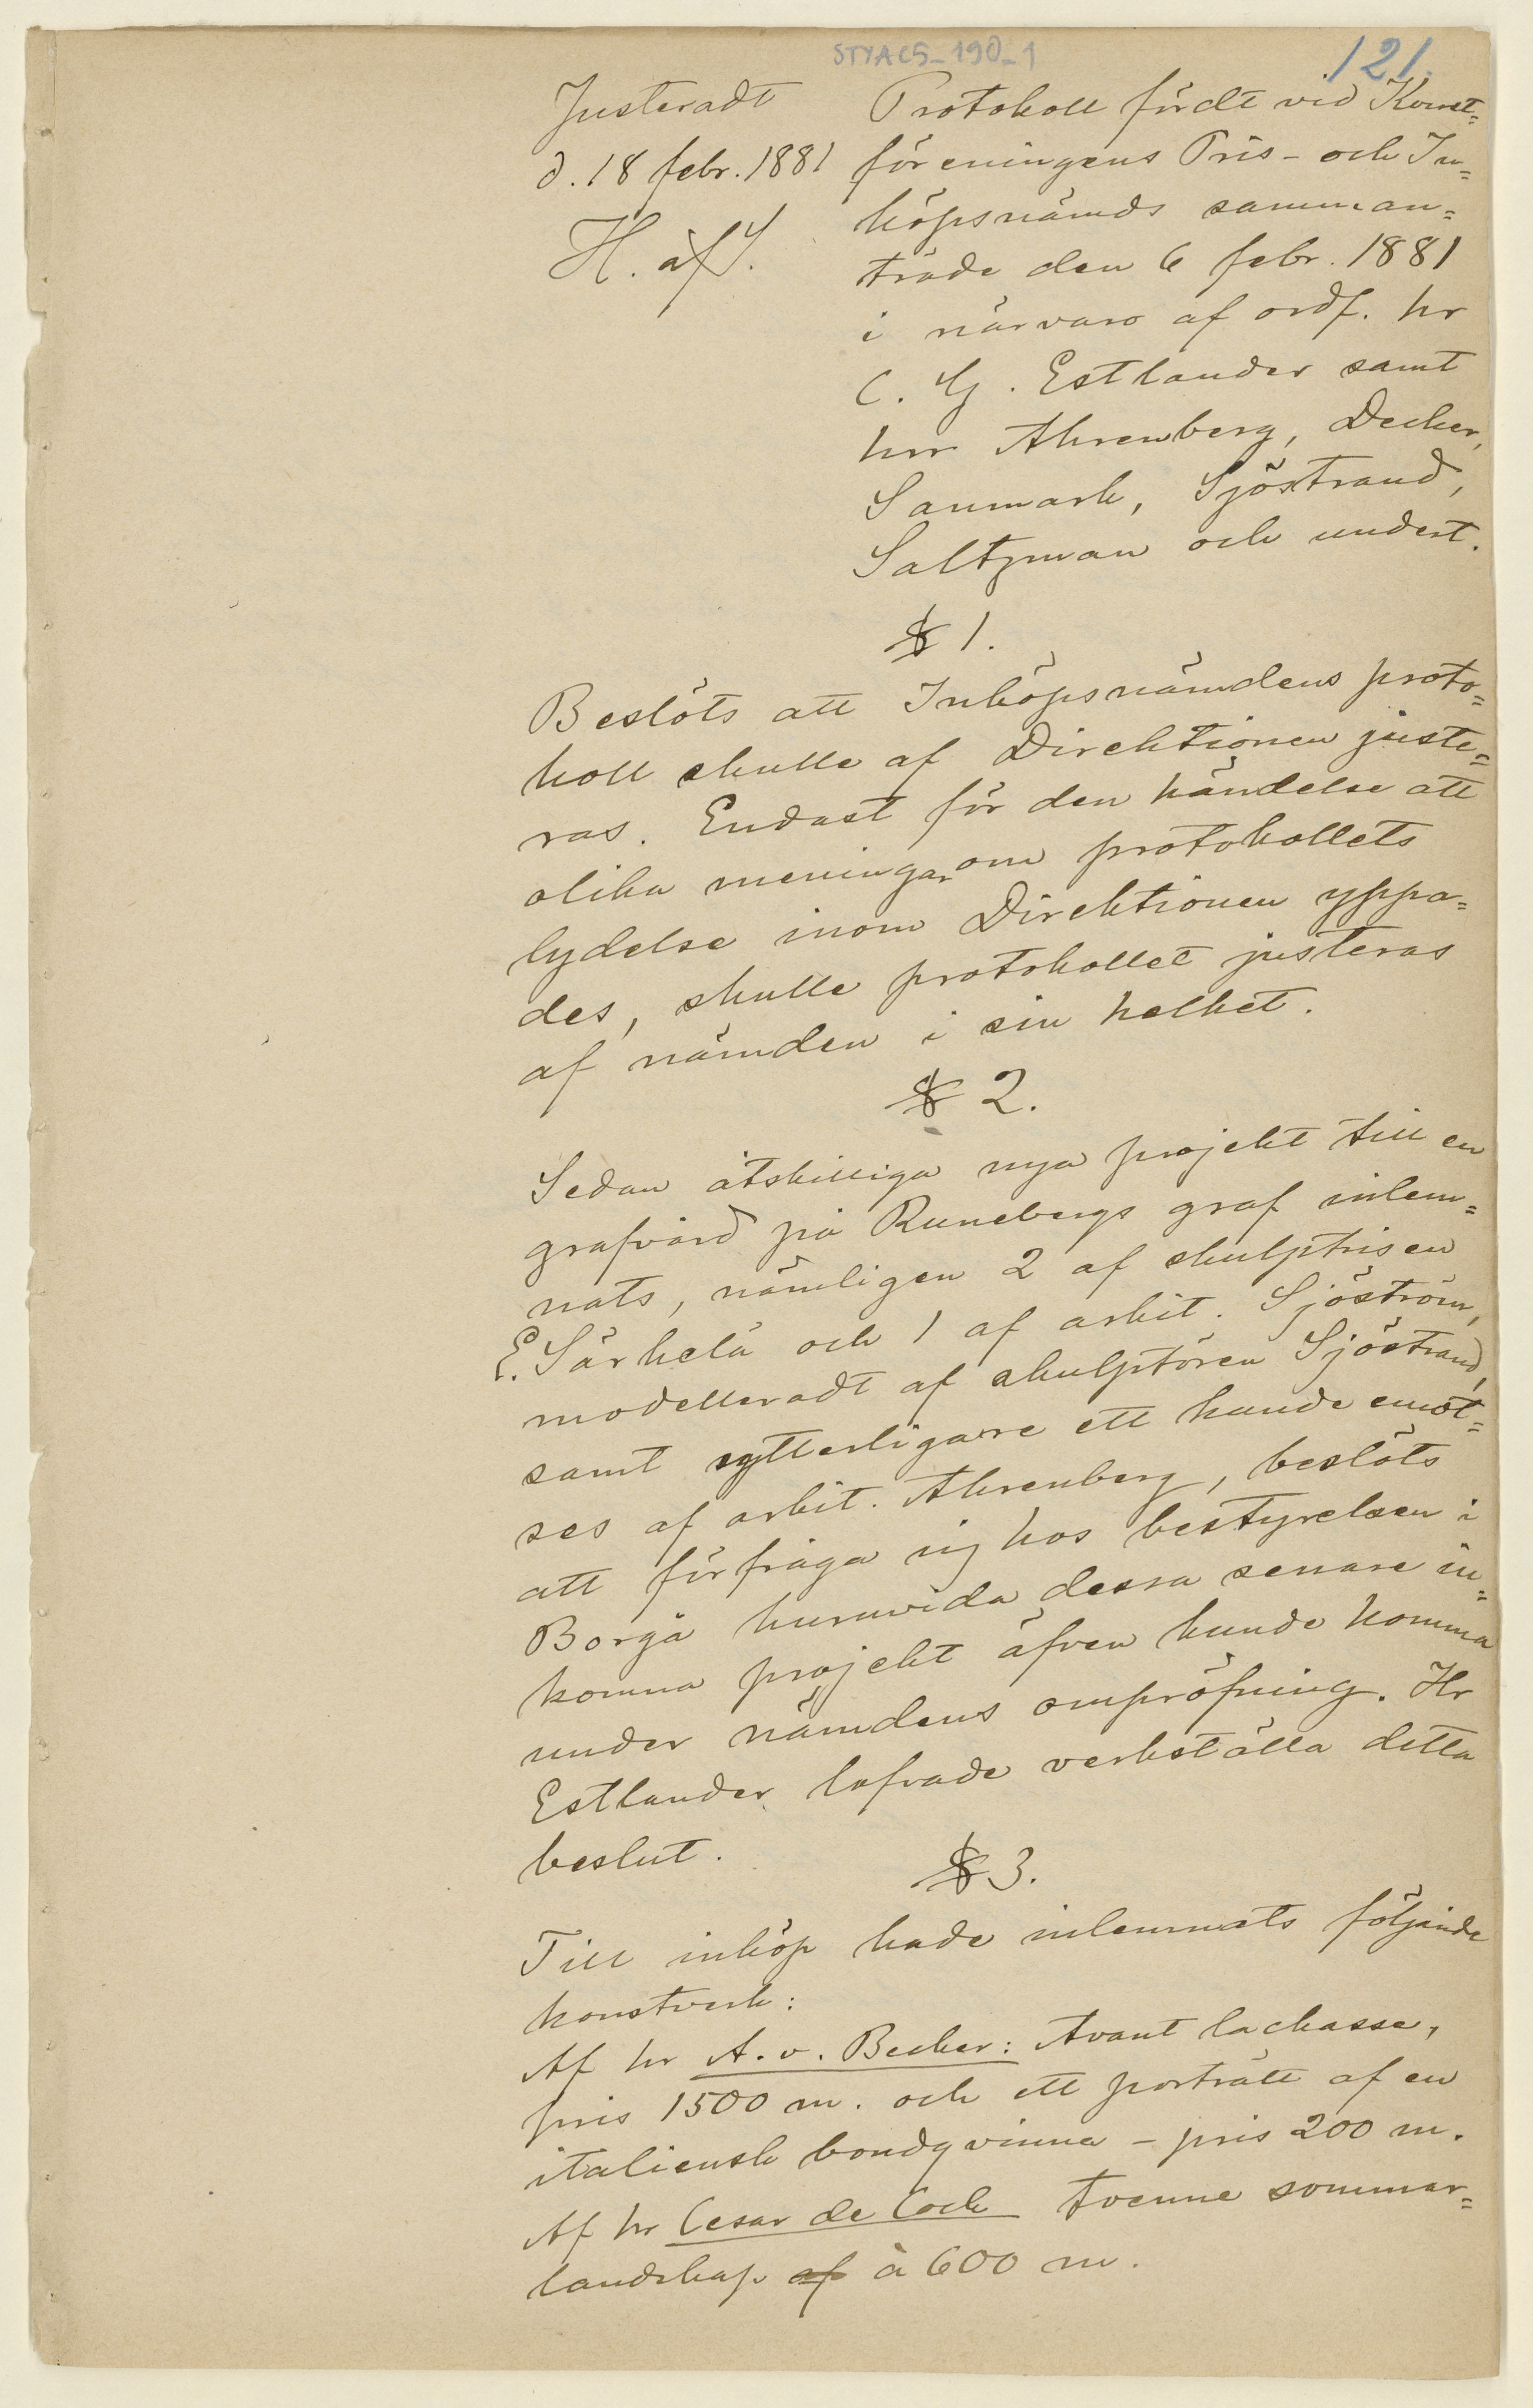 STYAC5_190_1
121.
Justeradt
d. 18 febr. 1881
H. af S.
Protokoll fördt vid Konst=
föreningens Pris- och In=
köpsnämds samman=
träde den 6 febr. 1881
i närvaro af ordf. hr
C. G. Estlander samt
hrr Ahrenberg, Decker,
Sanmark, Sjöstrand,
Saltzman och undert.
§ 1.
Beslöts att Inköpsnämdens proto=
koll skulle af Direktionen juste=
ras. Endast för den händelse att
olika meningar om protokollets
lydelse inom Direktionen yppa=
des, skulle protokollet justeras
af nämden i sin helhet.
§ 2.
Sedan åtskilliga nya projekt till en
grafvård på Runebergs graf inlem=
nats, nämligen 2 af skulptrisen
E. Särkelä och 1 af arkit. Sjöström,
modelleradt af skulptören Sjöstrand,
samt ytterligare ett kunde emot=
ses af arkit. Ahrenberg, beslöts
att förfråga sig hos bestyrelsen i
Borgå huruvida dessa senare in=
komna projekt äfven kunde komma
under nämdens ompröfning. Hr
Estlander lofvade verkställa detta
beslut.
§ 3.
Till inköp hade inlemnats följande
konstverk:
Af hr A. v. Becker: Avant la chasse,
pris 1500 m. och ett porträtt af en
italiensk bondqvinna – pris 200 m.
Af hr Cesar de Cock tvenne sommar=
landskap af à 600 m.